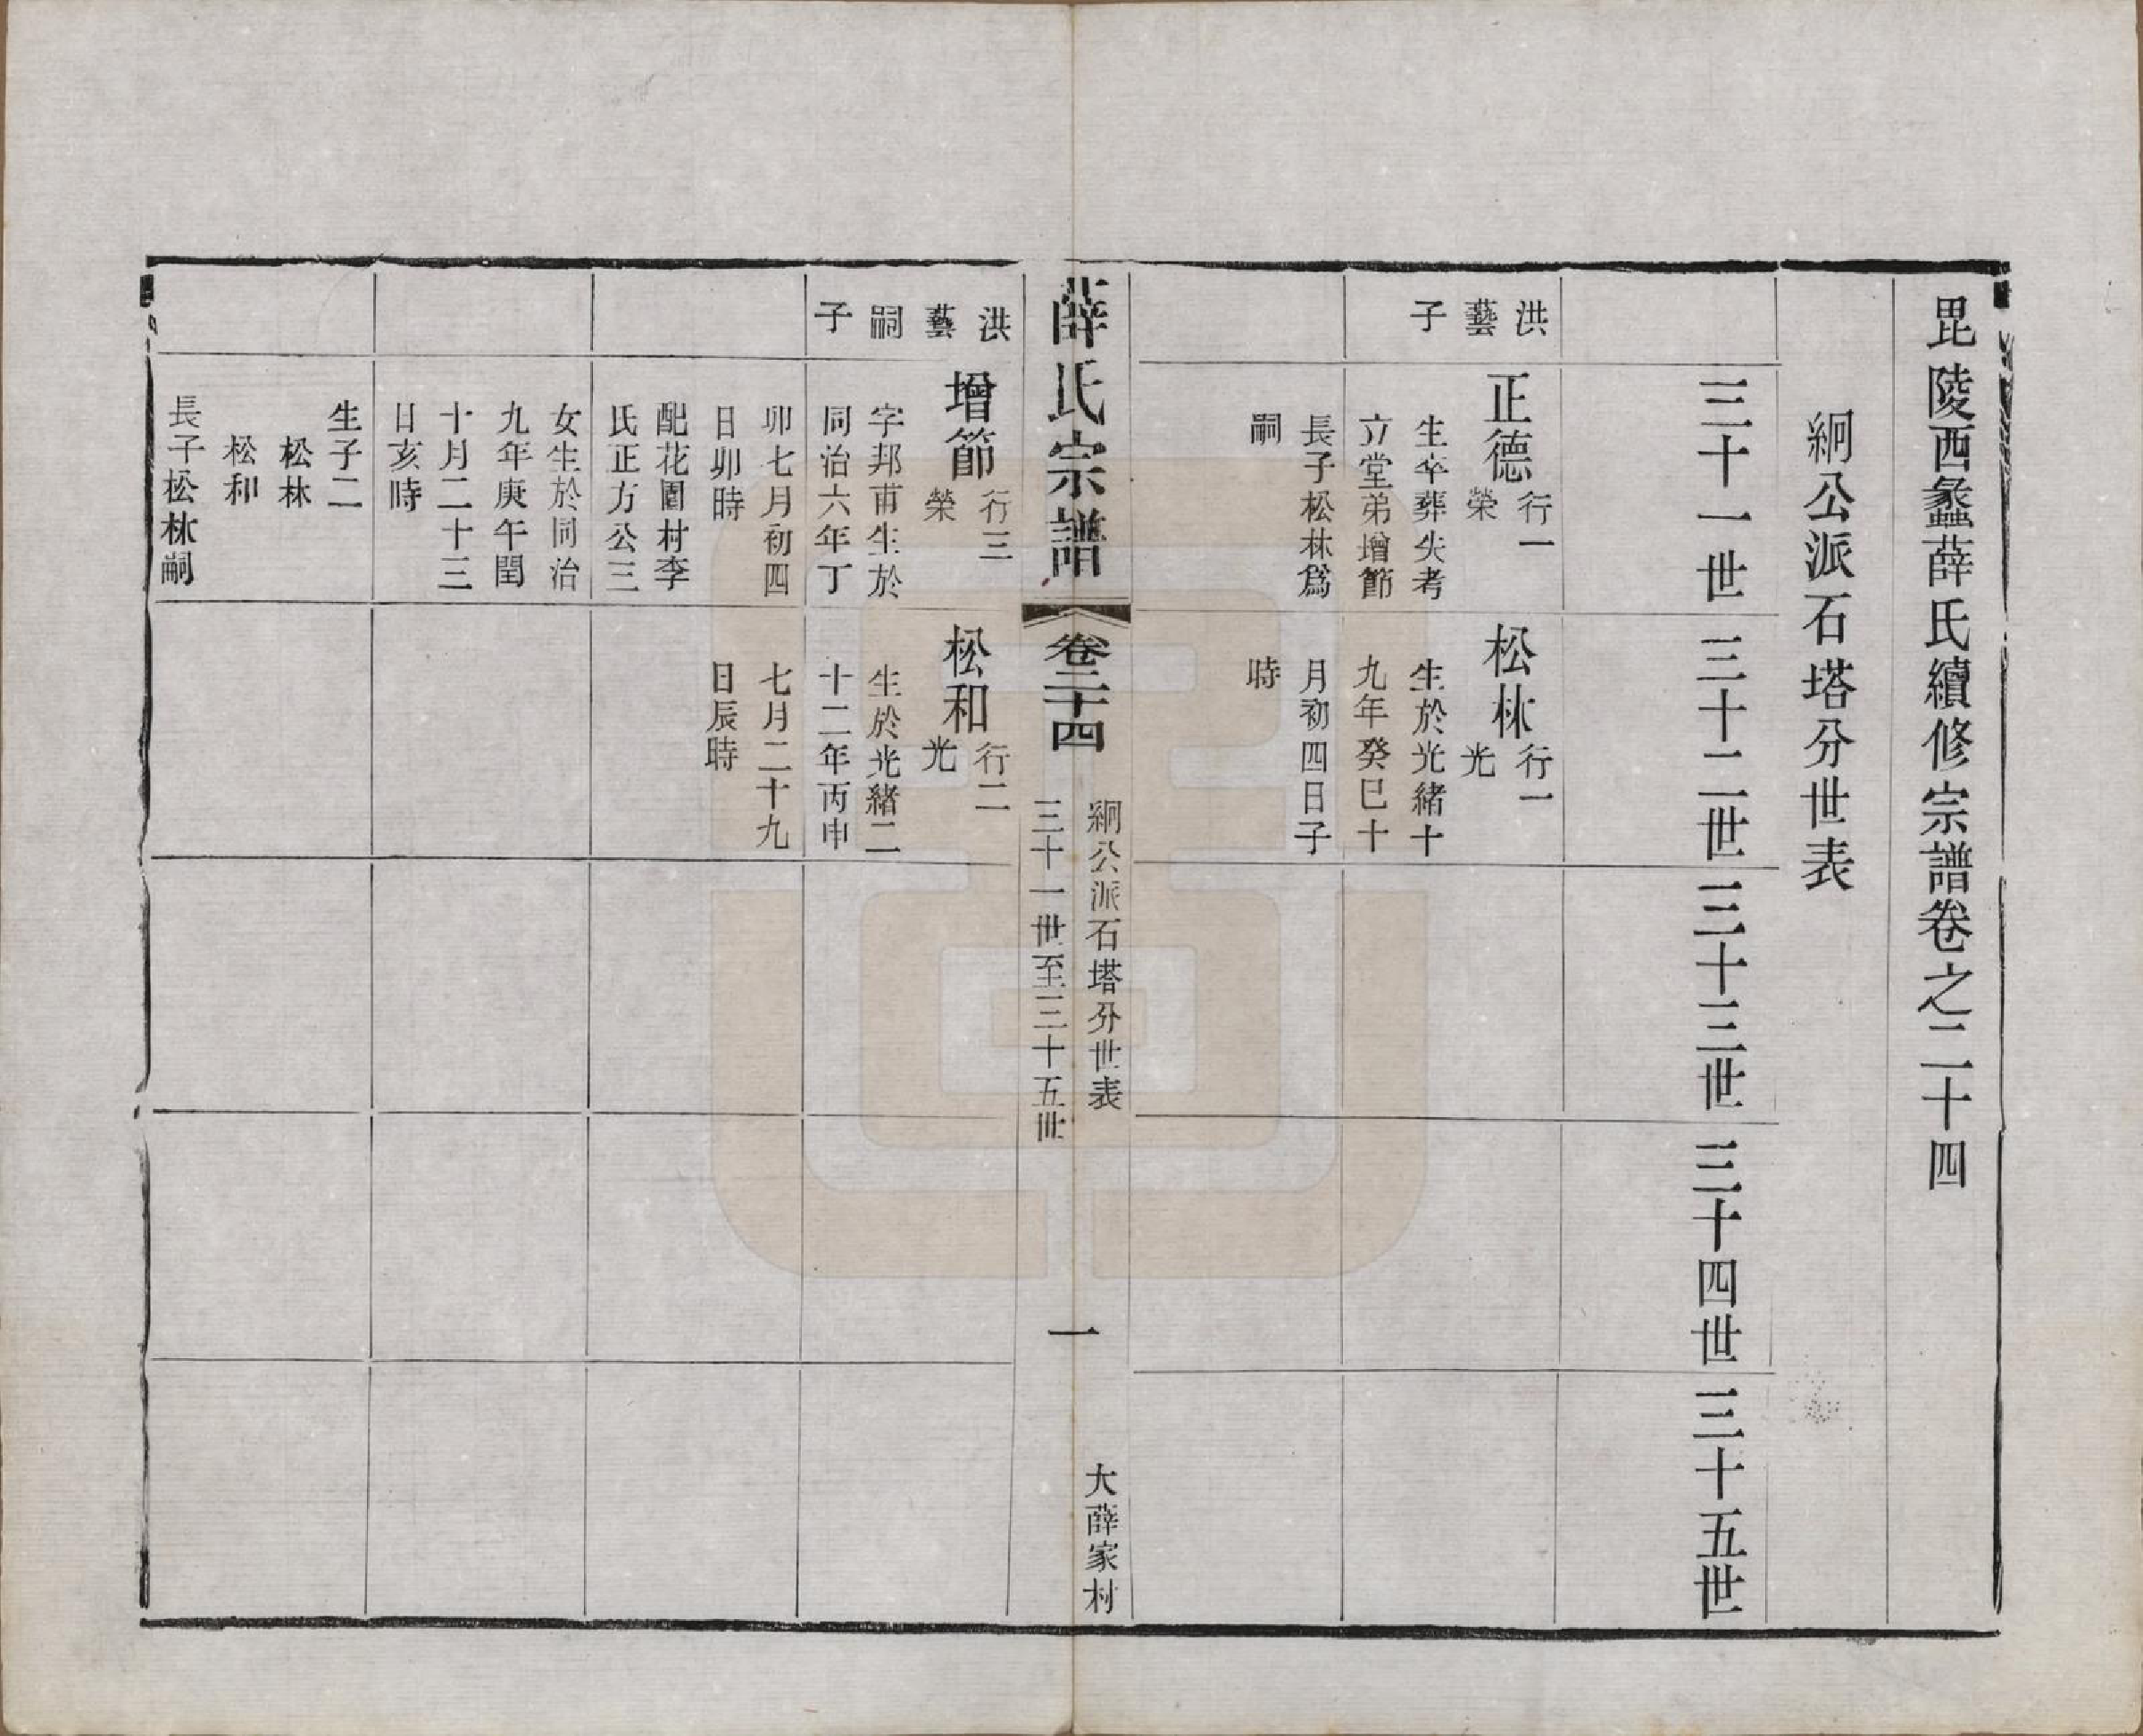 毘陵西蠡薛氏續修宗譜卷之二十四
絅公派石塔分世表
三十一世
三十二世
三十三世
三十四世
三十五世
洪
藝
子
正德
行一
榮
生卒葬失考
立堂弟增節
長子松林爲
嗣
松林
行一
光
生於光緒十
九年癸巳十
月初四日子
時
薛氏宗譜
卷二十四
絅公派石塔分世表
三十一世至三十五世
一
大薛家村
洪
藝
嗣
子
增節
行三
榮
字邦甫生於
同治六年丁
卯七月初四
日卯時
配花園村李
氏正方公三
女生於同治
九年庚午閏
十月二十三
日亥時
生子二
松林
松和
長子松林嗣
松和
行二
光
生於光緒二
十二年丙申
七月二十九
日辰時